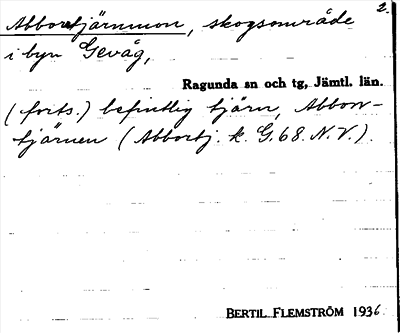 2.
Abborrtjärnmon, skogsområde
i byn Gevåg,
Ragunda sn och tg, Jämtl. län.
(forts.) befintlig tjärn, Abborr-
tjärnen (Abbortj. k. G.68.N.V.).
BERTIL FLEMSTRÖM 1936